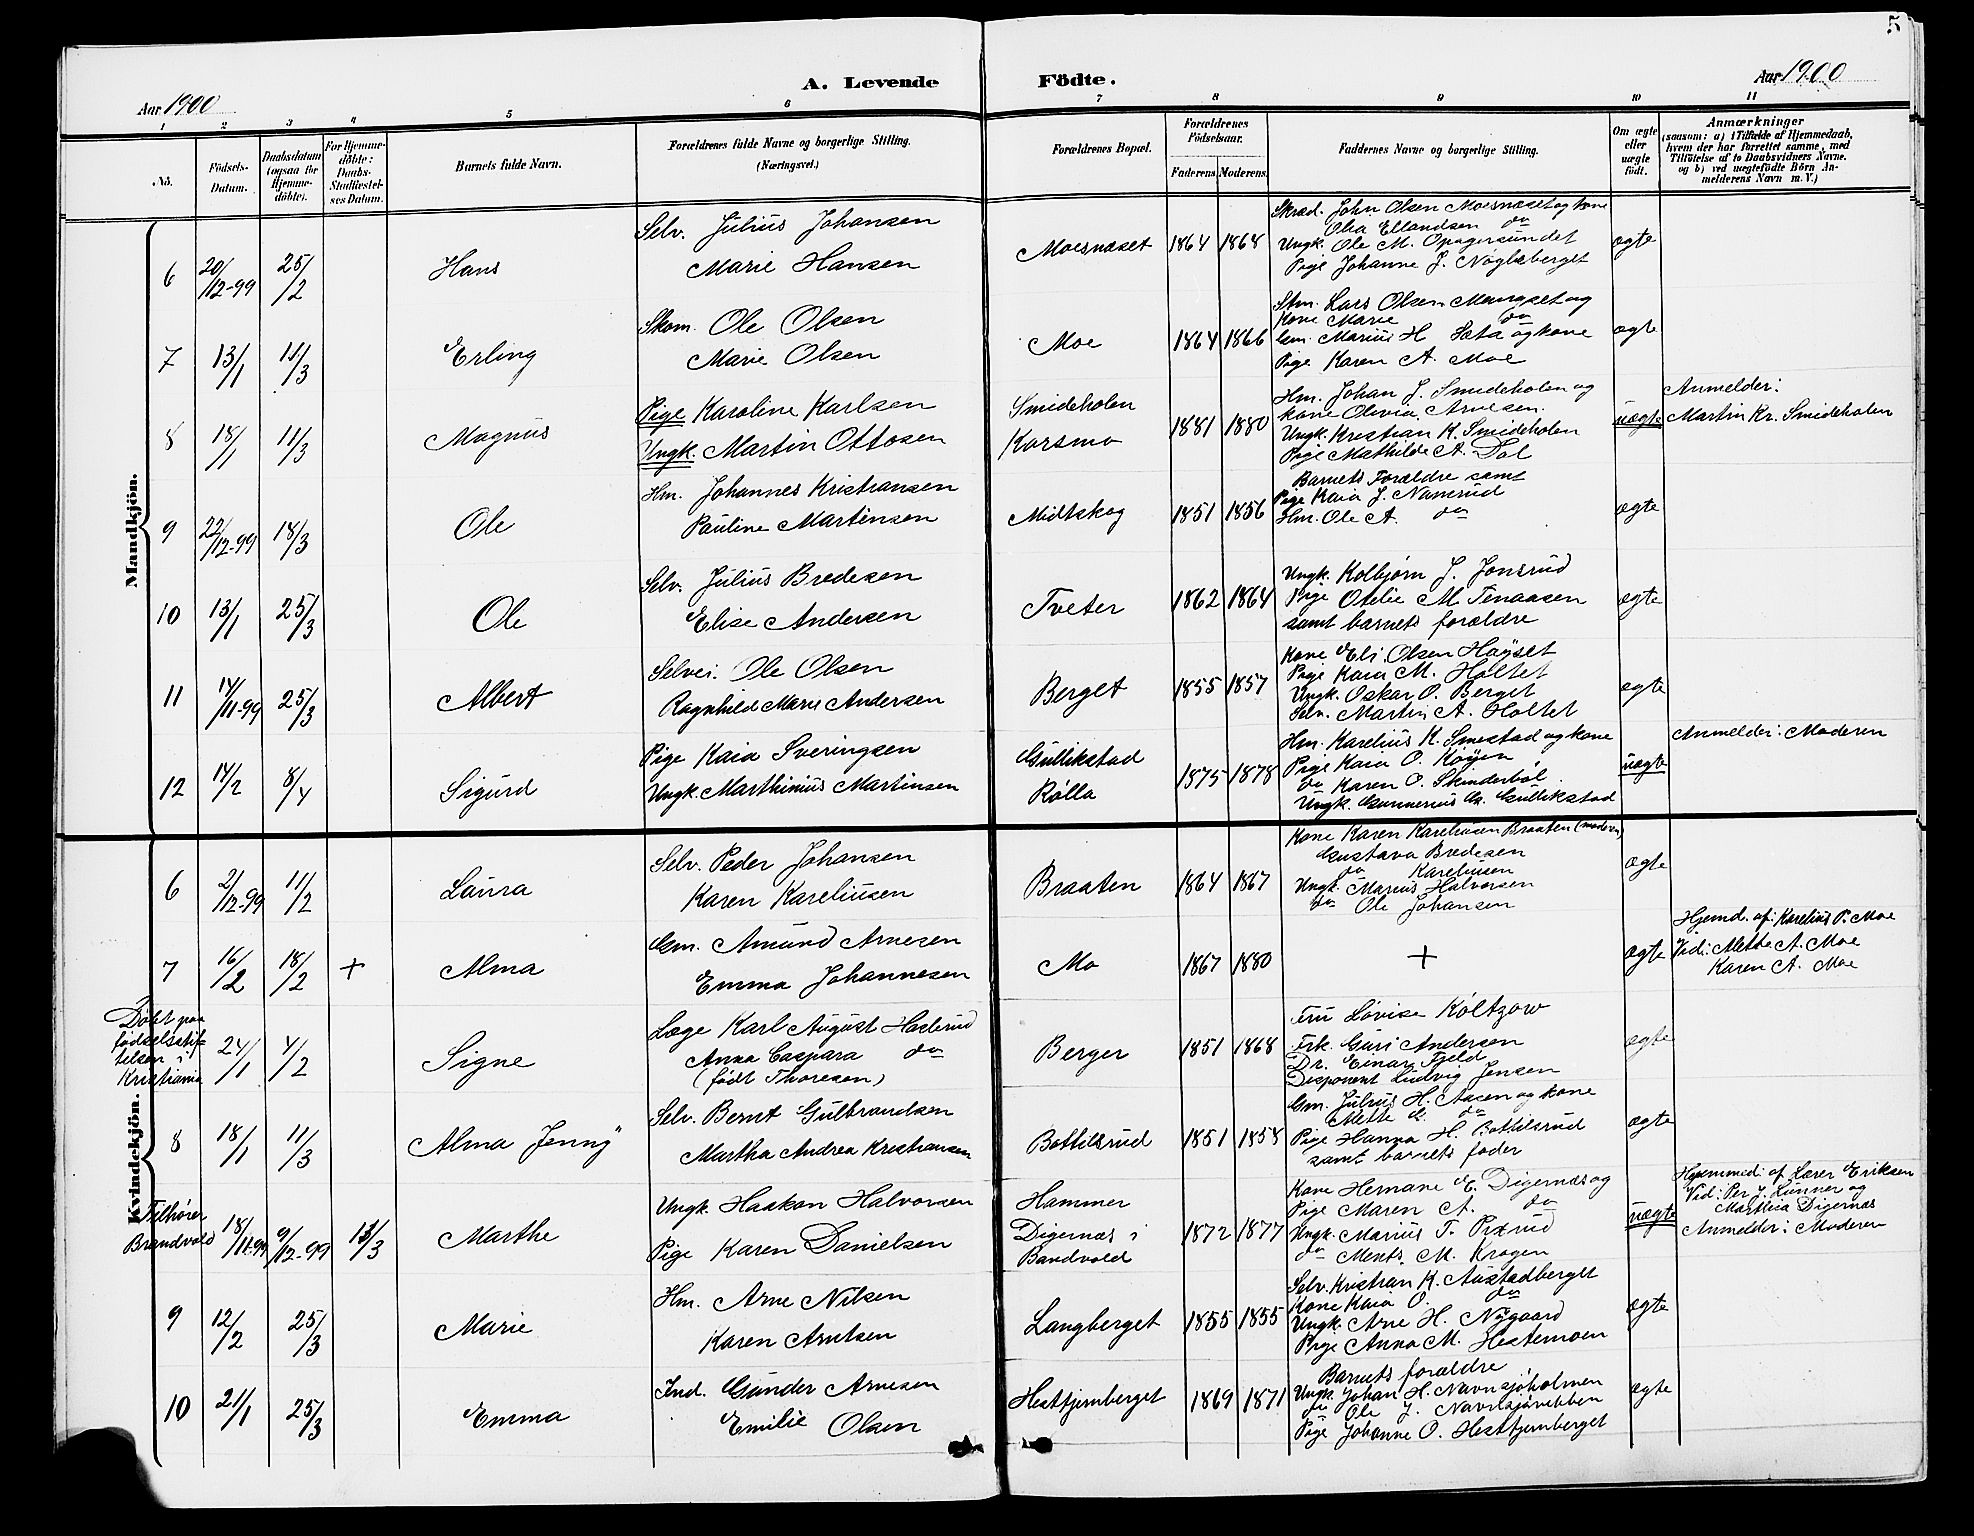 5
A. Levende Födte.
Aar 1900
Aar 1900
1 2 3 4 5 6 7 8 9 10 11
No.
Födsels-Datum.
Daabsdatum (ogsaa for Hjemme-döbte).
For Hjemme-döbte: Daabs-Stadfæstel-ses Datum.
Barnets fulde Navn.
Forældrenes fulde Navne og borgerlige Stilling.
(Næringsvei.)
Forældrenes Bopæl.
Forældrenes Födselsaar.
Faderens. Moderens.
Faddernes Navne og borgerlige Stilling.
Om ægte eller uægte födt.
Anmærkninger
(saasom: a) i Tilfælde af Hjemmedaab,
hvem der har forrettet samme, med
Tilföielse af to Daabsvidners Navne.
og b) ved uægtefödte Börn An-
melderens Navn m. V.)
Mandkjön.
6 20/12-99 25/2 Hans
Selv. Julius Johansen
Marie Hansen
Moesnæset 1864 1868
Skræd. John Olsen Moesnæset og kone
Olia Ellandsen do
Ungk. Ole M. Opagersundet
Pige Johanne J. Nøgleberget
ægte
7 13/1 11/3 Erling
Skom. Ole Olsen
Marie Olsen
Moe 1864 1866
Stm. Lars Olsen Mangset og
Kone Marie do
Gm. Marius H Sæta og kone
Pige Karen A. Moe
ægte
8 18/1 11/3 Magnus
Pige Karoline Karlsen
Ungk. Martin Ottosen
Smideholen
Korsmo
1881 1880
Hm. Johan J. Smideholen og
kone Olivia Arnesen.
Ungk. Kristian K. Smideholen
Pige Mathilde A. Dal
uægte
Anmelder:
Martin Kr. Smideholen
9 22/12-99 18/3 Ole
Hm. Johannes Kristiansen
Pauline Martinsen
Midtskog 1851 1856
Barnets Forældre samt
Pige Kaia J. Namsrud
Hm. Ole A. do
ægte
10 13/1 25/3 Ole
Selv. Julius Bredesen
Elise Andersen
Tveter 1862 1864
Ungk. Kolbjørn J. Jonsrud
Pige Otelie M. Tenaasen
samt barnets forældre
ægte
11 14/11-99 25/3 Albert
Selvei. Ole Olsen
Ragnhild Marie Andersen
Berget 1855 1857
Kone Eli Olsen Høyset
Pige Kaia M. Holtet
Ungk. Oskar O. Berget
Selv. Martin A. Holtet
ægte
12 14/2 8/4 Sigurd
Pige Kaia Sveringsen
Ungk. Marthinius Martinsen
Gullikstad
Rølla
1875 1878
Hm. Karelius K. Smestad og kone
Pige Kaia O. Køyen
do Karen O. Skinderbøl.
Ungk. Gunnerius G. Gullikstad
uægte
Anmelder: Moderen
Kvindekjön.
6 2/12-99 11/2 Laura
Selv. Peder Johansen
Karen Kareliusen
Braaten 1864 1867
Kone Karen Kareliusen Braaten (moderen)
Gustava Bredesen
do Kareliusen
Ungk. Marius Halvorsen
do Ole Johansen
ægte
7 16/2 18/2 + Alma
Gm. Amund Arnesen
Emma Johannesen
Mo 1867 1880
+
ægte
Hjemd. af: Karelius P. Moe
Vid: Mette A. Moe
Karen A. Moe
Døbt paa
fødselsstif-
telsen i
Kristiania
24/1 4/2 Signe
Læge Karl August Haslerud
Anna Caspara do
(født Thoresen)
Berger 1851 1868
Fru Lovise Koltzow
Frk. Guri Andersen
Dr. Einar Fjeld
Disponent Ludvig Jensen
ægte
8 18/1 11/3 Alma Jenny
Selv. Bernt Gulbrandsen
Martha Andrea Kristiansen
Bottilsrud 1851 1858
Gm. Julius H. Aasen og kone
Mette G. do
Pige Hanna H. Bottilsrud
samt barnets fader
ægte
Tilhører
Brandvold
18/11-99 9/12-99 11/3 Marthe
Ungk. Haakon Halvorsen
Pige Karen Danielsen
Hammer
Digernæs i
Bandvold
1872 1877
Kone Hernane E. Digernæs og
Pige Maren A. do
Ungk. Marius T. Pixrud
do Ments. M. Krogen
uægte
Hjemmed: af Lærer Eriksen
Vid: Per J. Lunner og
Marthea Digernæs
Anmelder: Moderen
9 12/2 25/3 Marie
Hm. Arne Nilsen
Karen Arntsen
Langberget 1855 1855
Selv. Kristian K. Austadberget
Kone Kaia O. do
Ungk. Arne H. Nygaard
Pige Anna M. Hestemoen
ægte
10 21/1 25/3 Emma
Ind. Gunder Arnesen
Emilie Olsen
Hesttjernberget 1869 1871
Barnets forældre
Ungk. Johan H. Navnsjøholmen
do Ole J.
Pige Johanne O. Hesttjernberget
ægte